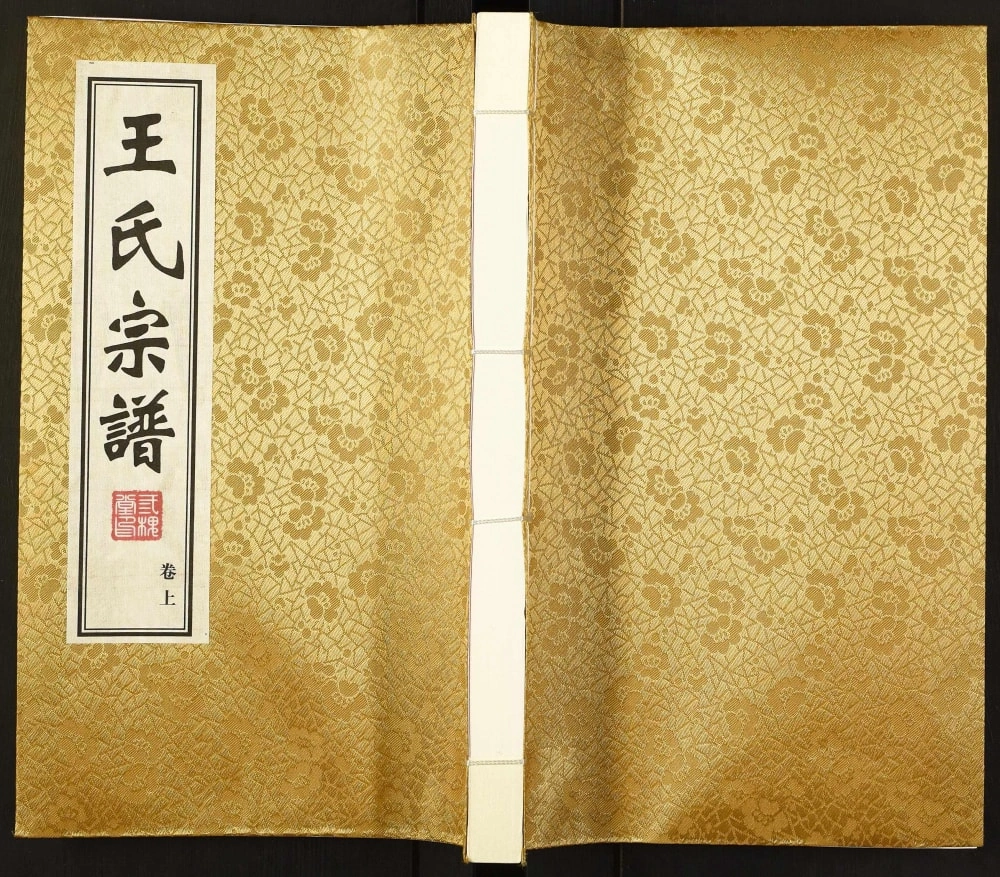 王氏宗譜
三槐
堂印
卷上